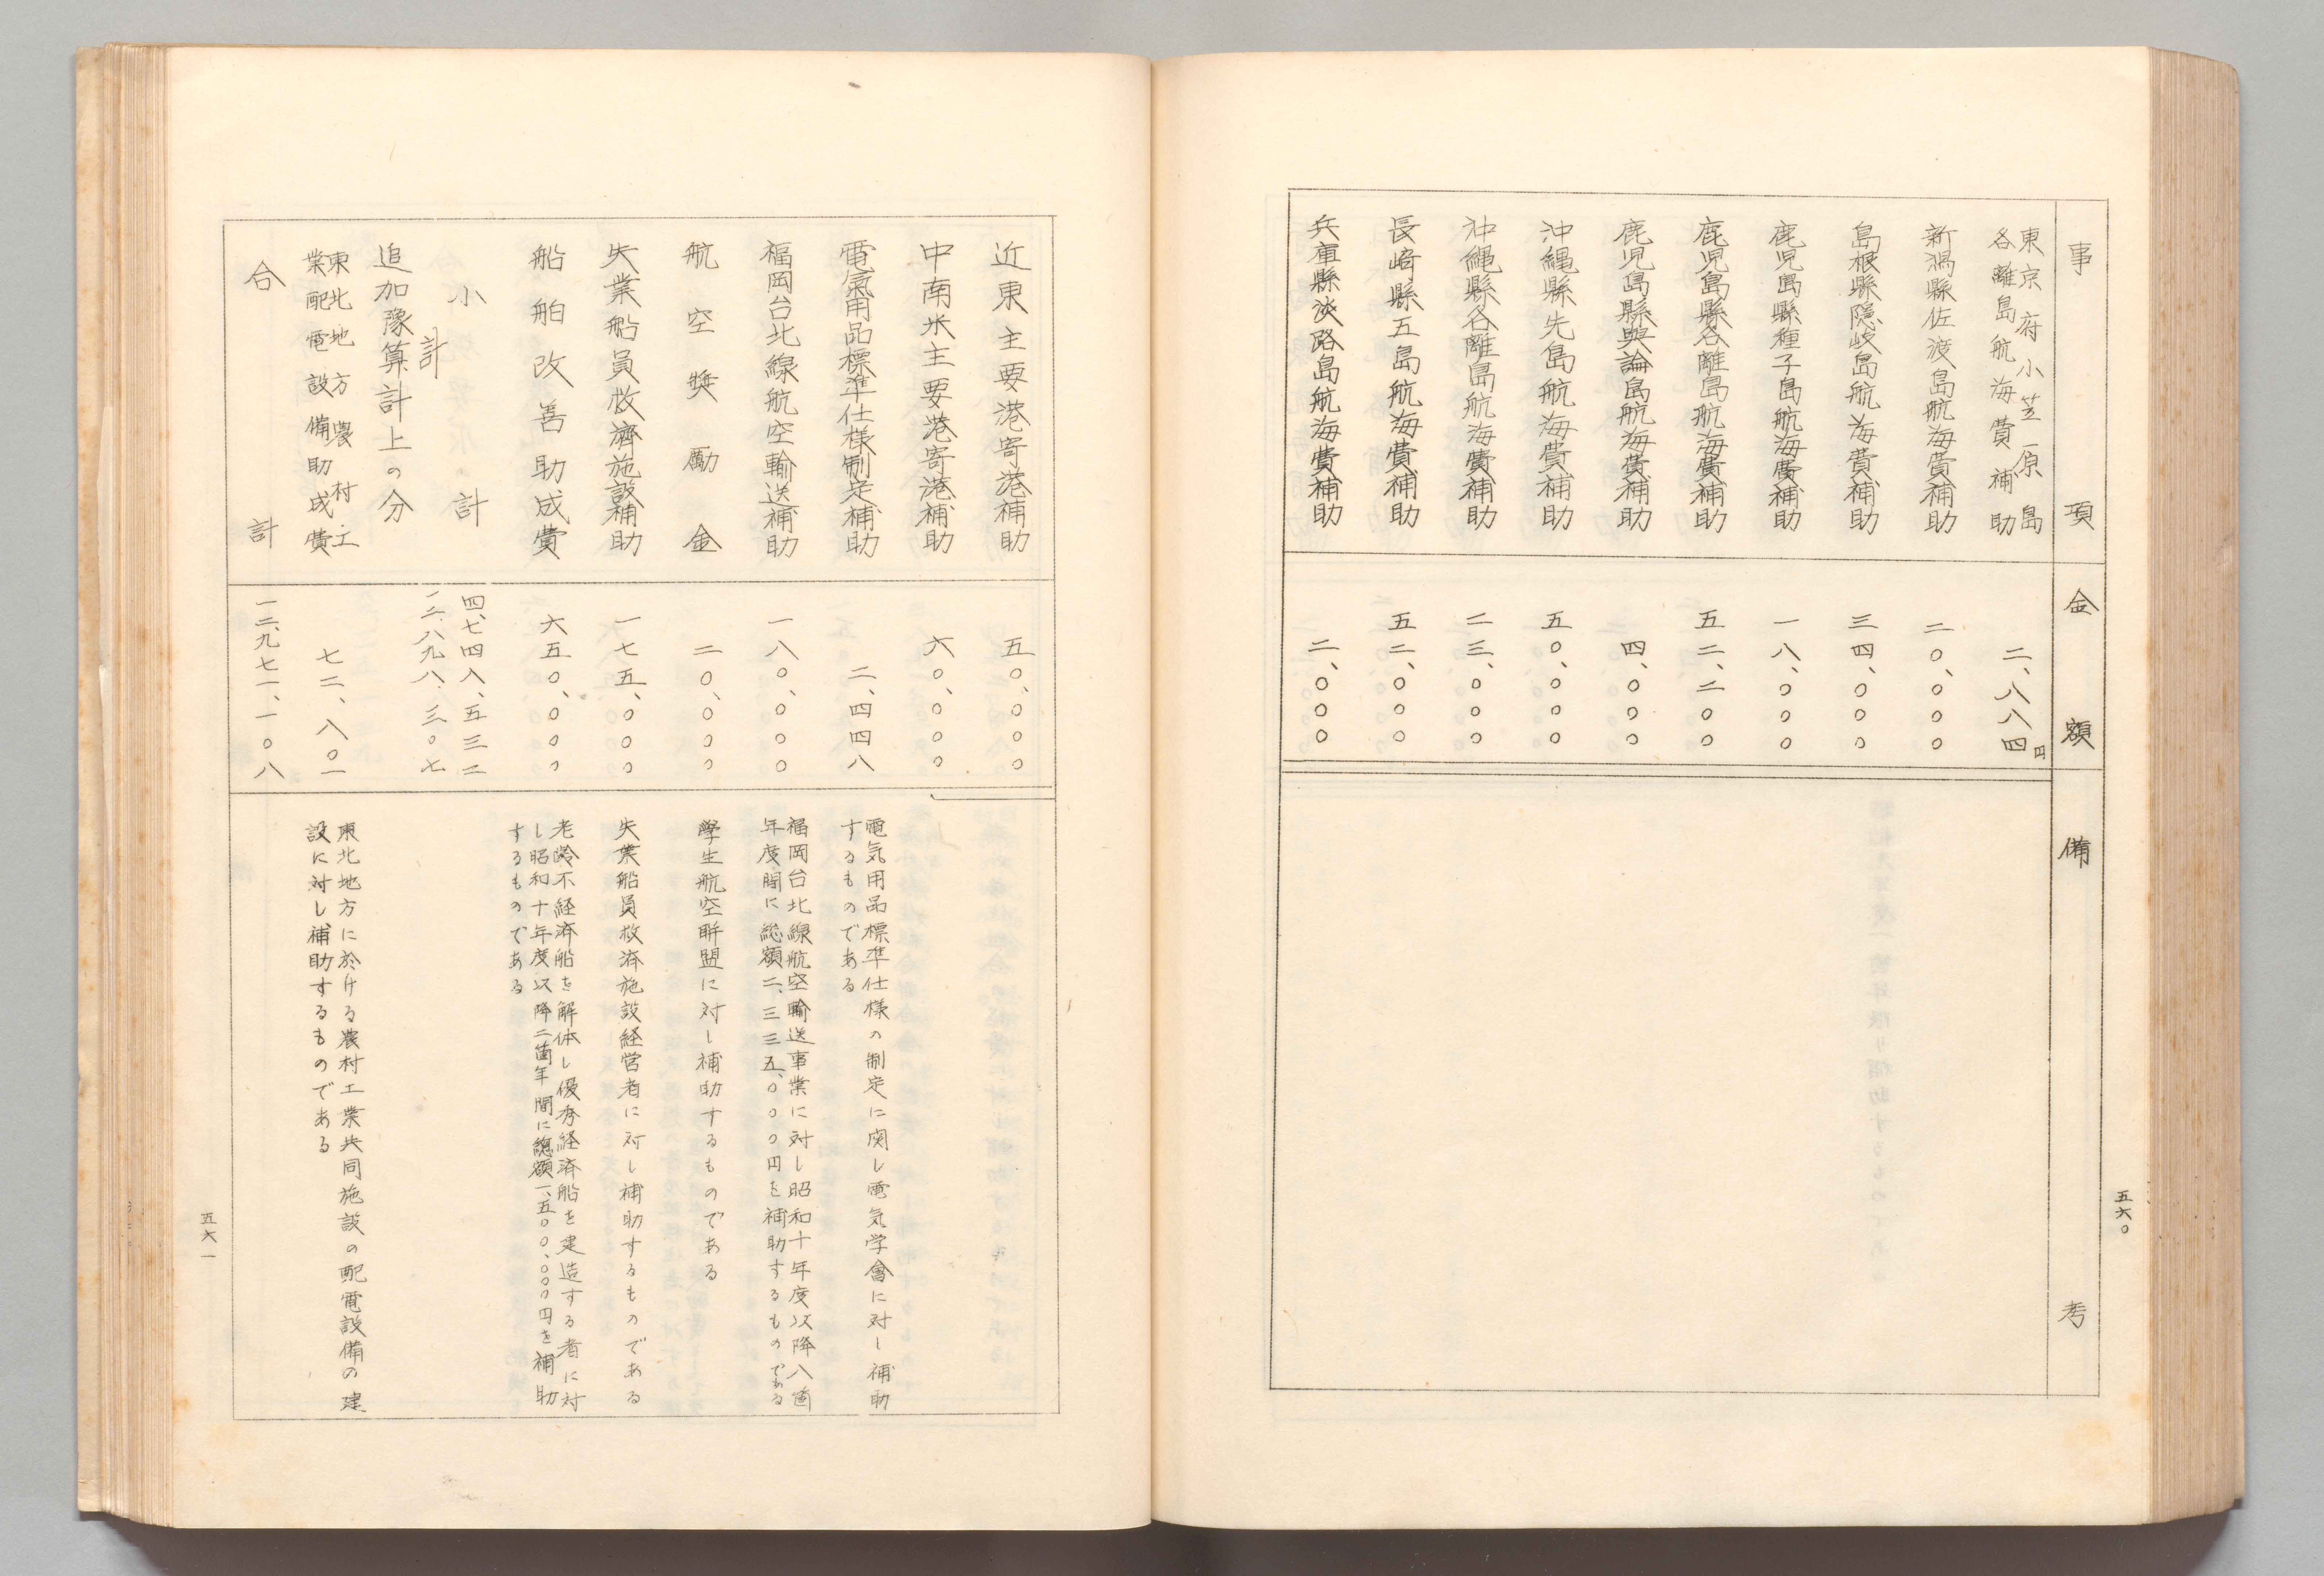 五六〇
事項
金額
備考
東京府小笠原島
各離島航海費補助
二、八八四円
新潟縣佐渡島航海費補助
二〇、〇〇〇
島根縣隠岐島航海費補助
三四、〇〇〇
鹿児島縣種子島航海費補助
一八、〇〇〇
鹿児島縣各離島航海費補助
五二、二〇〇
鹿児島縣與論島航海費補助
四、〇〇〇
沖縄縣先島航海費補助
五〇、〇〇〇
沖縄縣各離島航海費補助
二三、〇〇〇
長崎縣五島航海費補助
五二、〇〇〇
兵庫縣淡路島航海費補助
二、〇〇〇
近東主要港寄港補助
五〇、〇〇〇
中南米主要港寄港補助
六〇、〇〇〇
電氣用品標準仕様制定補助
二、四四八
電気用品標準仕様の制定に関し電気学會に対し補助
するものである
福岡台北線航空輸送補助
一八〇、〇〇〇
福岡台北線航空輸送事業に対し昭和十年度以降八箇
年度間に総額二、三三五、〇〇〇円を補助するものである
航空奬勵金
二〇、〇〇〇
學生航空聯盟に対し補助するものである
失業船員救濟施設補助
一七五、〇〇〇
失業船員救済施設経営者に対し補助するものである
船舶改善助成費
六五〇、〇〇〇
老齢不経済船を解体し優秀経済船を建造する者に対
し昭和十年度以降二箇年間に総額一、五〇〇、〇〇〇円を補助
するものである
小計
四、七四八、五三二
計
一二、八九八、三〇七
追加豫算計上の分
東北地方農村工
業配電設備助成費
七二、八〇一
東北地方に於ける農村工業共同施設の配電設備の建
設に対し補助するものである
合計
一二、九七一、一〇八
五六一